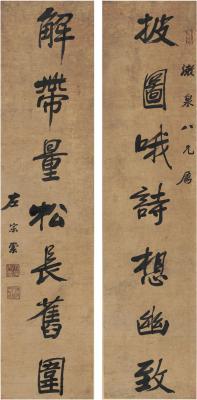 瀫泉八兄屬
披圖哦詩想幽致
解帶量松長舊圍
左宗棠